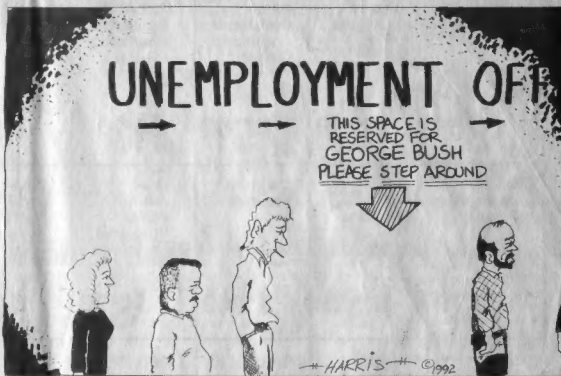 UNEMPLOYMENT OFF
THIS SPACE IS
RESERVED FOR
GEORGE BUSH
PLEASE STEP AROUND
HARRIS ©1992